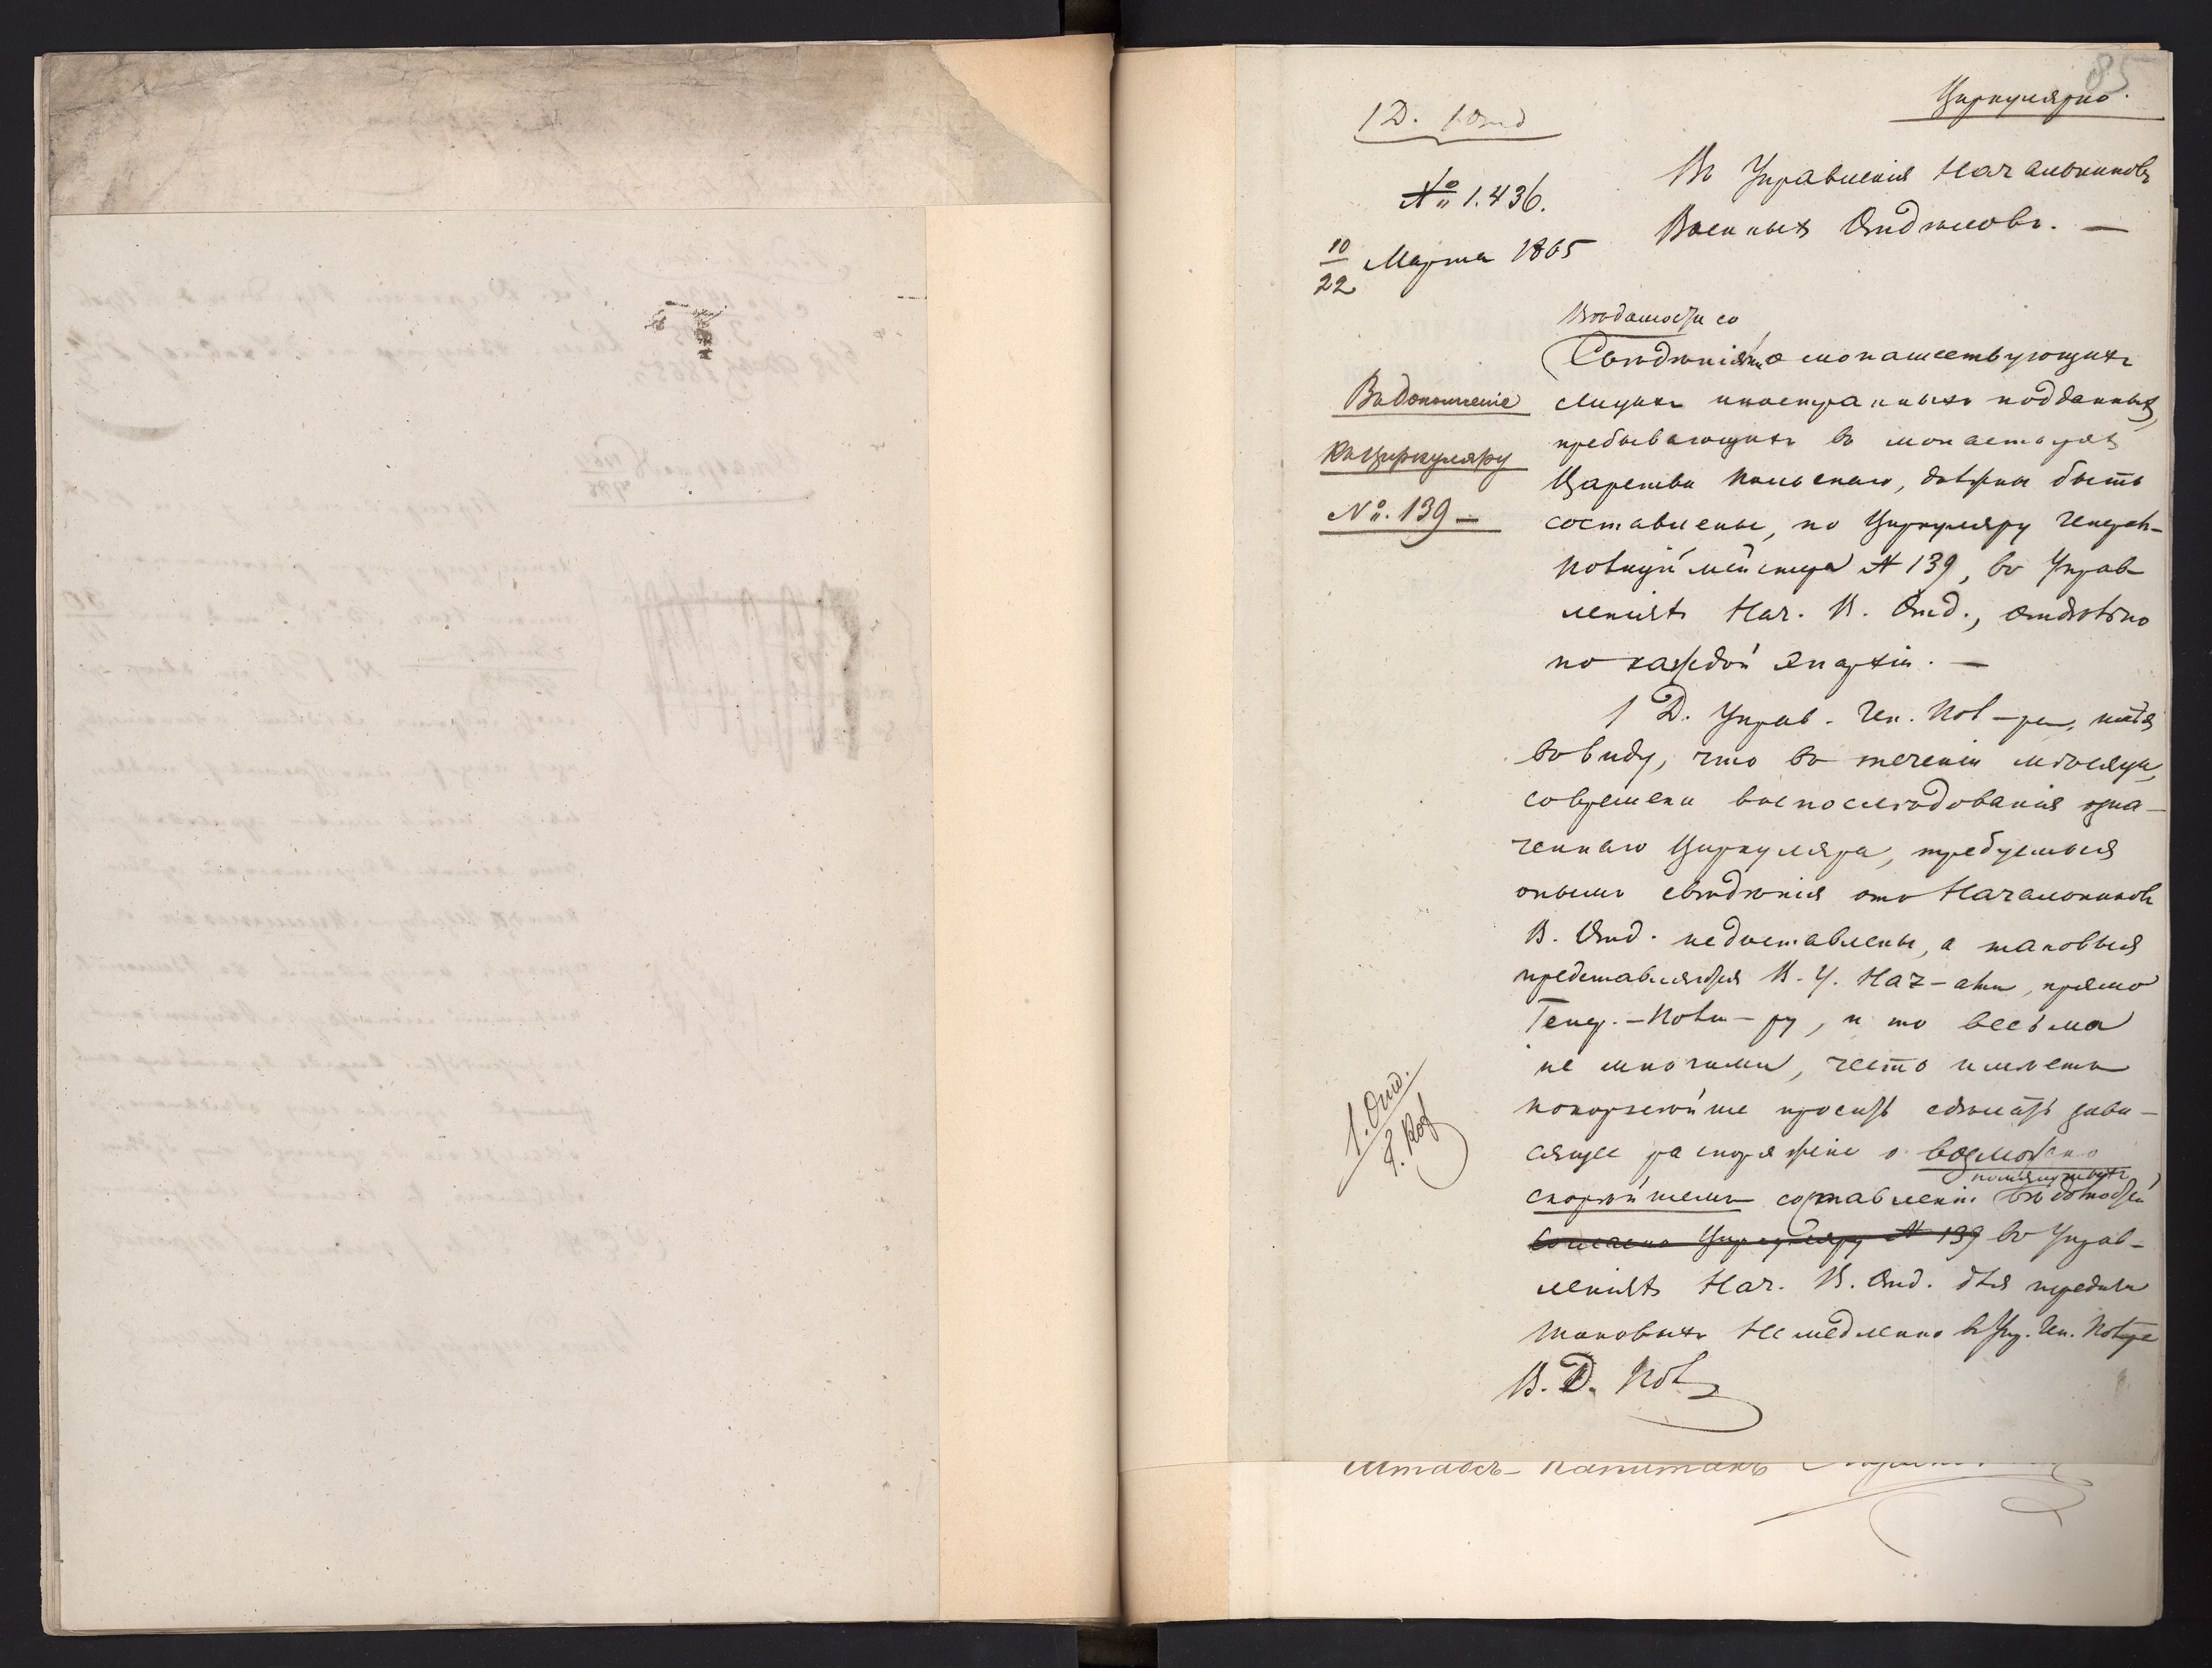 85
Циркулярно.
1 Д. 1 Отд
№ 1.436.
10/22 Марта 1865
Въ Управленія Начальниковъ
Военныхъ Отдѣловъ. —
Въ дополненіе
къ Циркуляру
№. 139 —
Вѣдомости со
Свѣдѣніями о монашествующихъ
лицахъ иностранныхъ подданныхъ,
пребывающихъ въ монастыряхъ
Царства Польскаго, должны быть
составлены, по Циркуляру Генералъ-
Полицiймейстера № 139, въ Управ
леніяхъ Нач. В. Отд., отдѣльно
по каждой Епархіи. —
1 Д. Управ. Ген. Пол-ра, имѣя
въ виду, что въ теченіи мѣсяца,
со времени воспослѣдованія озна-
ченнаго Циркуляра, требуемыя
онымъ свѣдѣнія отъ Начальниковъ
В. Отд. не доставлены, а таковыя
представляются В. У. Нач-ами, прямо
Генер.-Полиц-ру, и то весьма
не многими, честь имѣетъ
покорнѣйше просить сдѣлать зави-
сящее распоряженіе о возможно
скорѣйшемъ составленіи помянутыхъ вѣдомостей
согласно Циркуляру № 139 въ Управ-
леніяхъ Нач. В. Отд. для передачи
таковыхъ немедленно въ Упр. Ген. Полиц-ра
В. Д. Пол
1. Отд.
Штабсъ-Капитанъ